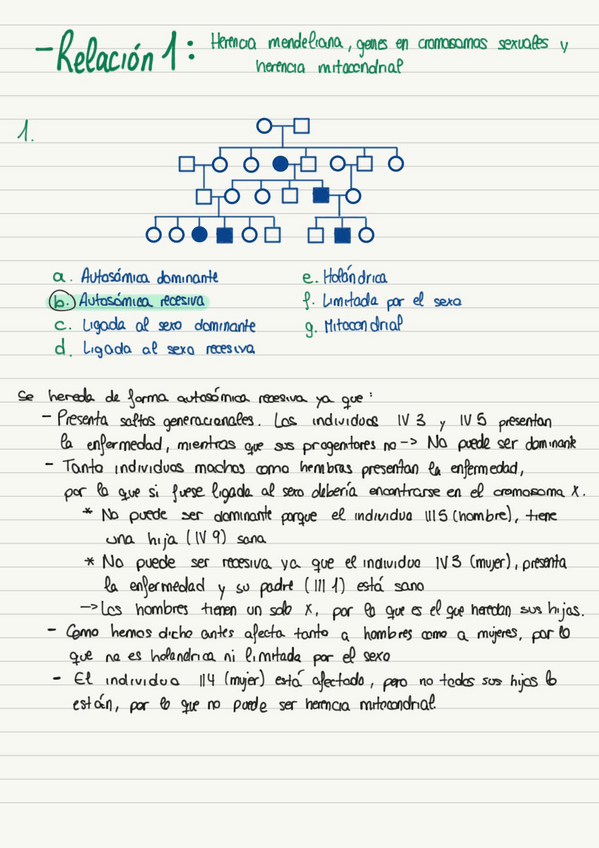 - Relación 1: Herencia mendeliana, genes en cromosomas sexuales y
herencia mitocondrial
1.
a. Autosómica dominante
b. Autosómica recesiva
c. Ligada al sexo dominante
d. Ligada al sexo recesiva
e. Holándrica
f. Limitada por el sexo
g. Mitocondrial
Se hereda de forma autosómica recesiva ya que:
- Presenta saltos generacionales. Los individuos IV 3 y IV 5 presentan
la enfermedad, mientras que sus progenitores no -> No puede ser dominante
- Tanto individuos machos como hembras presentan la enfermedad,
por lo que si fuese ligada al sexo debería encontrarse en el cromosoma X.
* No puede ser dominante porque el individuo III 5 (hombre), tiene
una hija (IV 9) sana
* No puede ser recesiva ya que el individuo IV 3 (mujer), presenta
la enfermedad y su padre (III 1) está sano
-> Los hombres tienen un solo X, por lo que es el que heredan sus hijas.
- Como hemos dicho antes afecta tanto a hombres como a mujeres, por lo
que no es holandrica ni limitada por el sexo
- El individuo II 4 (mujer) está afectado, pero no todos sus hijos lo
están, por lo que no puede ser herencia mitocondrial.